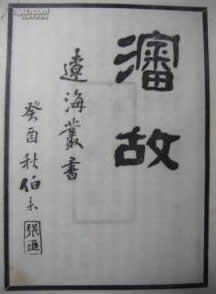 瀋故
遼海叢書
癸酉秋伯未